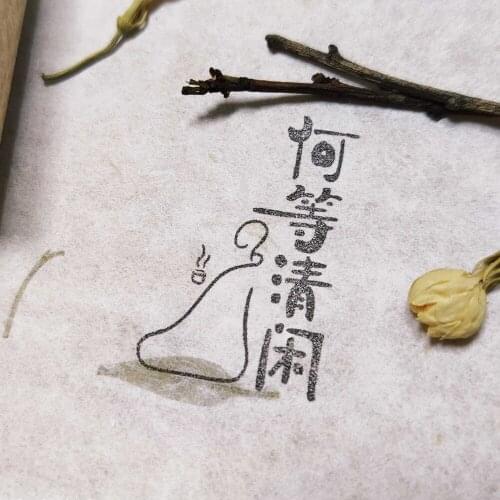 何等清闲